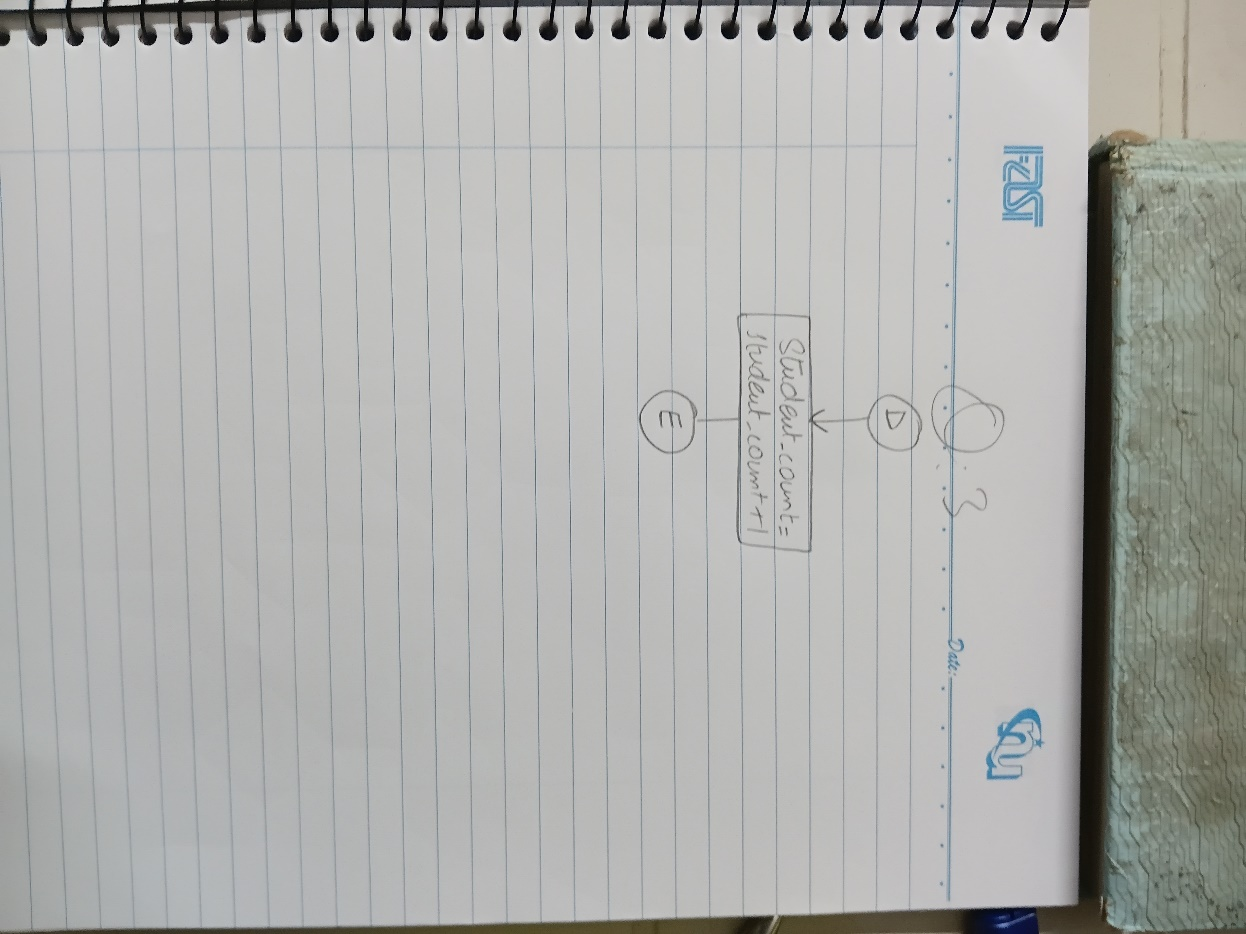 FAST
NU
3
Date:
D
Student_count=
student_count+1
E